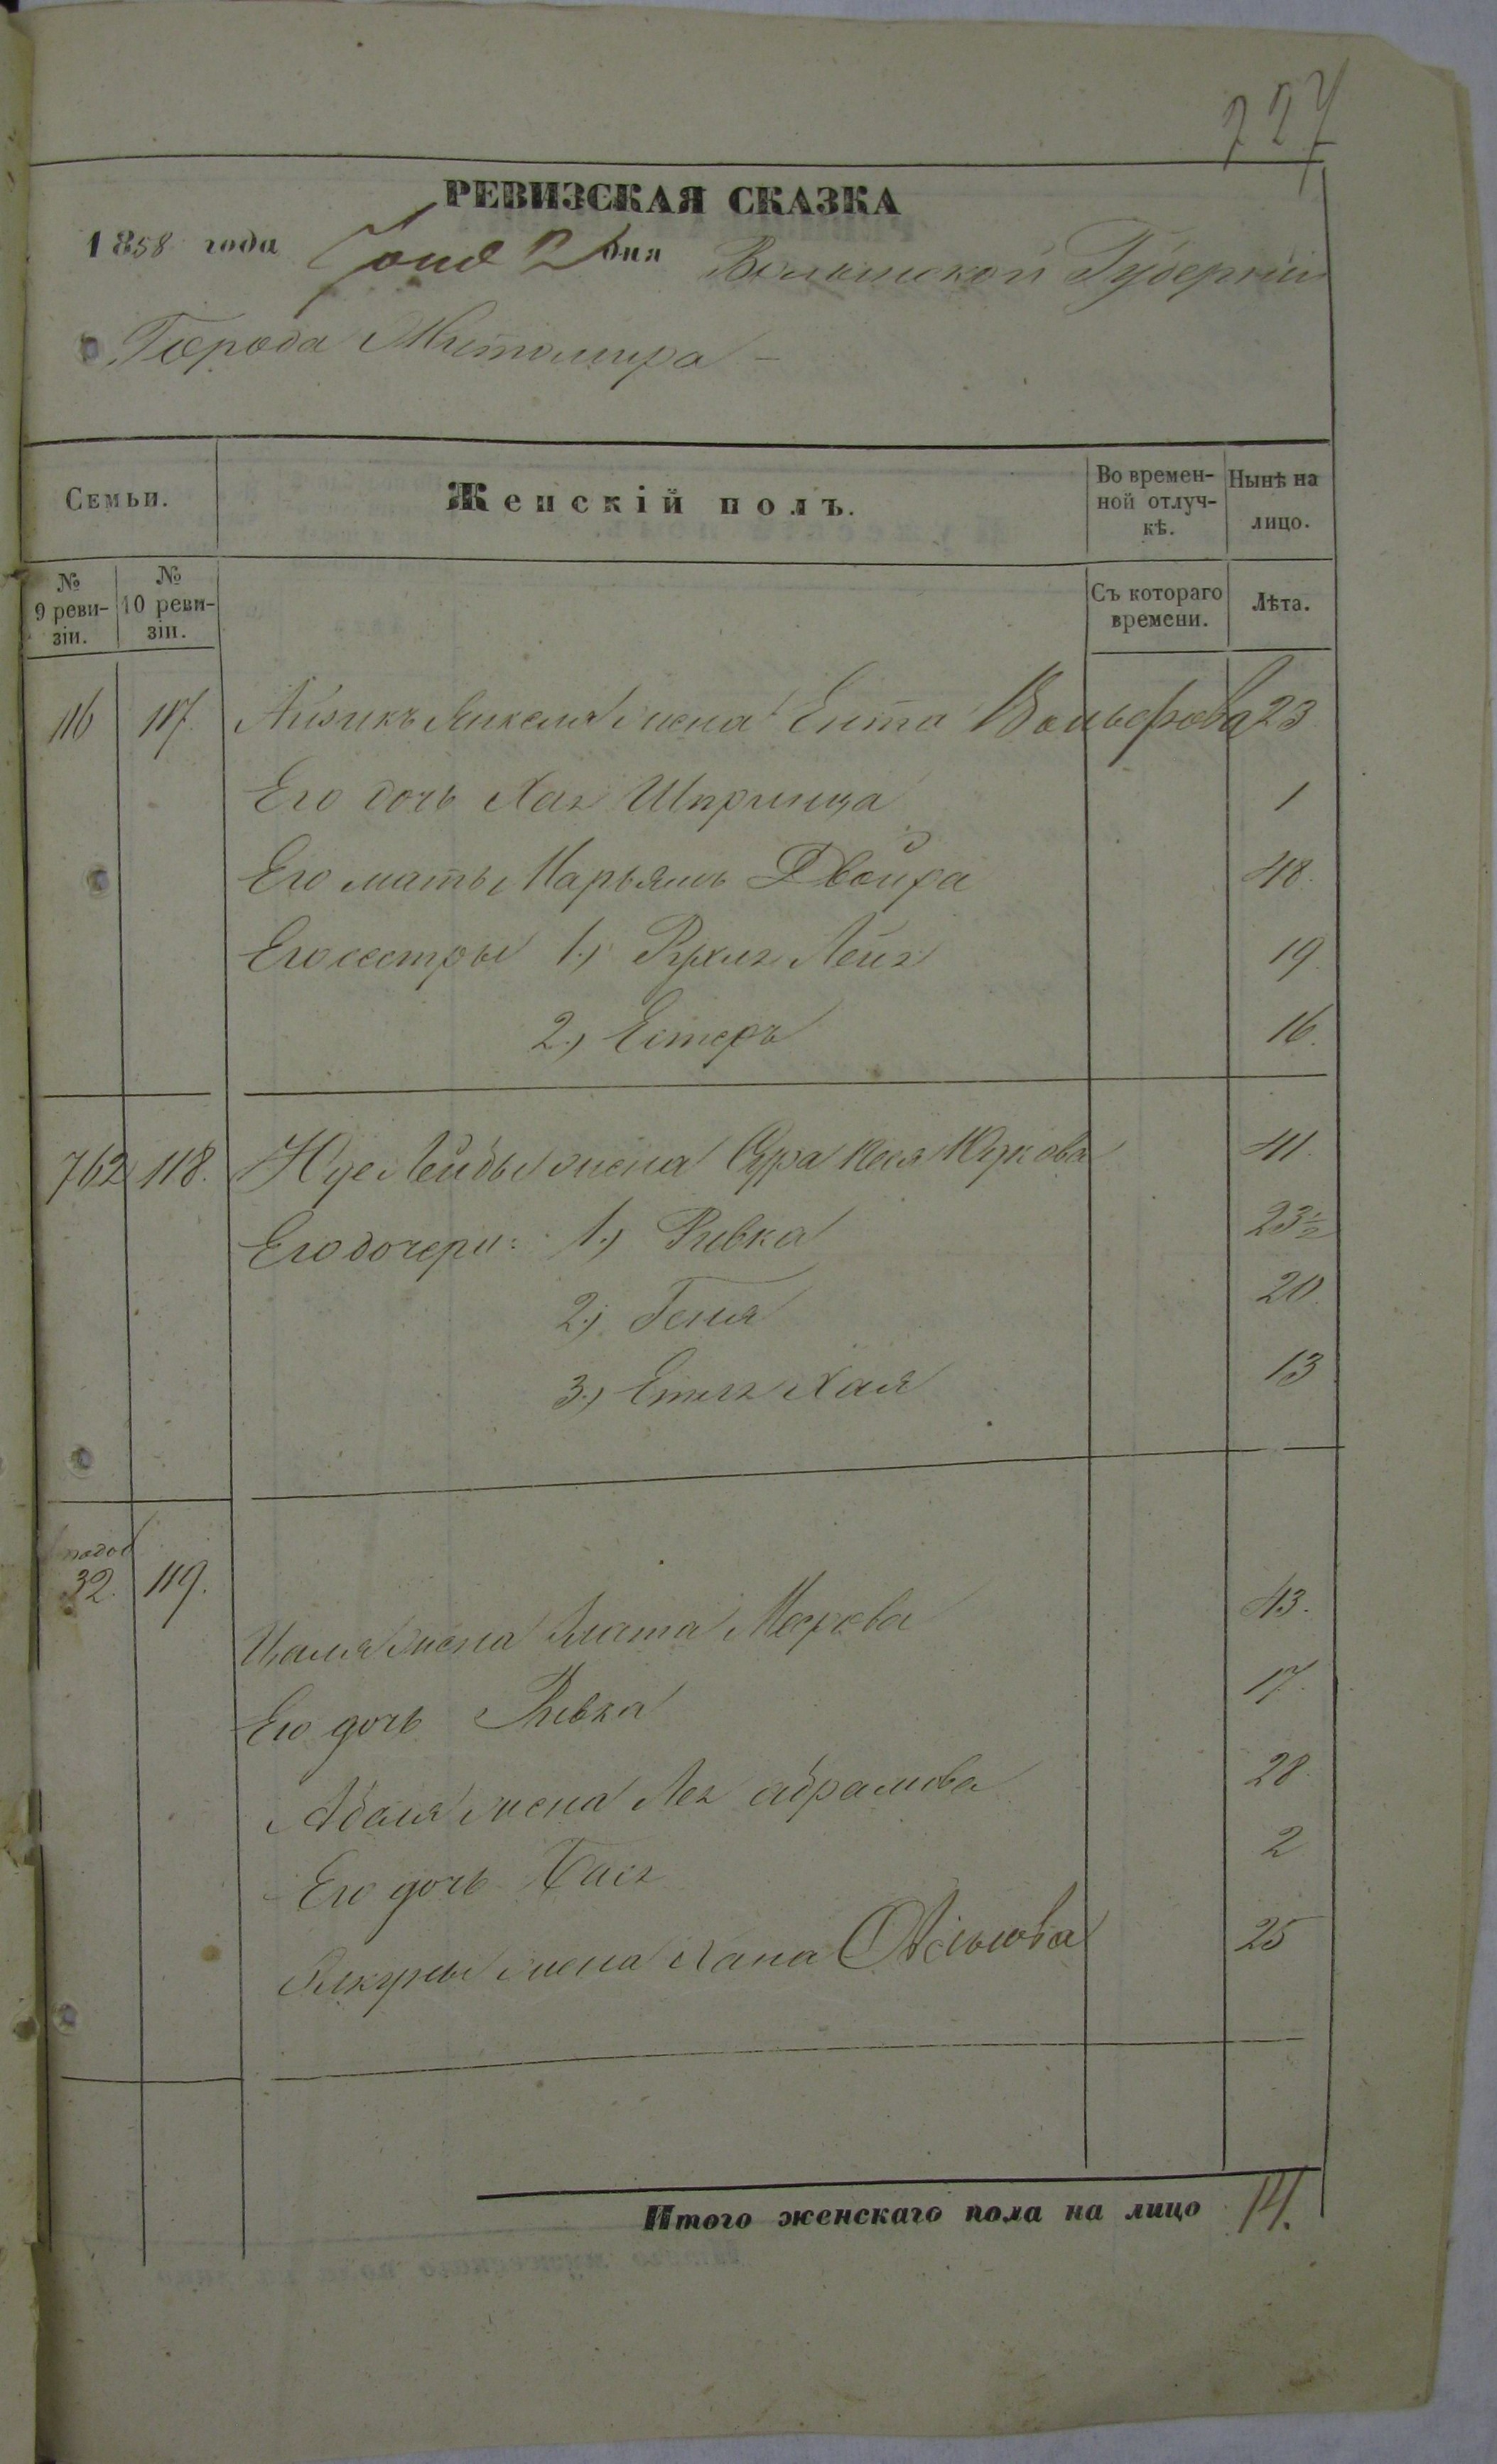 727
РЕВИЗСКАЯ СКАЗКА
1858 года Іюня 2 дня Волынской Губерніи
Города Житомира -
Семьи.
Женскій полъ.
Во времен-
ной отлуч-
кѣ.
Нынѣ на
лицо.
№
9 реви-
зіи.
№
10 реви-
зіи.
Съ котораго
времени.
Лѣта.
116 117 Айзикъ Янкеля жена Ента Вольфова 23
Его дочь Хая Шпринца 1
Его мать Марьямъ Двойра 48.
Его сестры 1.) Рухля Лея 19.
2.) Естеръ 16.
762 118. Лейбы жена Сура Юдкова 41.
Его дочери: 1.) Ривка 23½
2.) Геня 20.
3.) Етля Хая 13
32. 119.
жена Злата Меерова 43.
Его дочь Ривка 17.
жена Лея Абрамова 28.
Его дочь Бася 2
жена Хана 25
Итого женскаго пола на лицо 14.